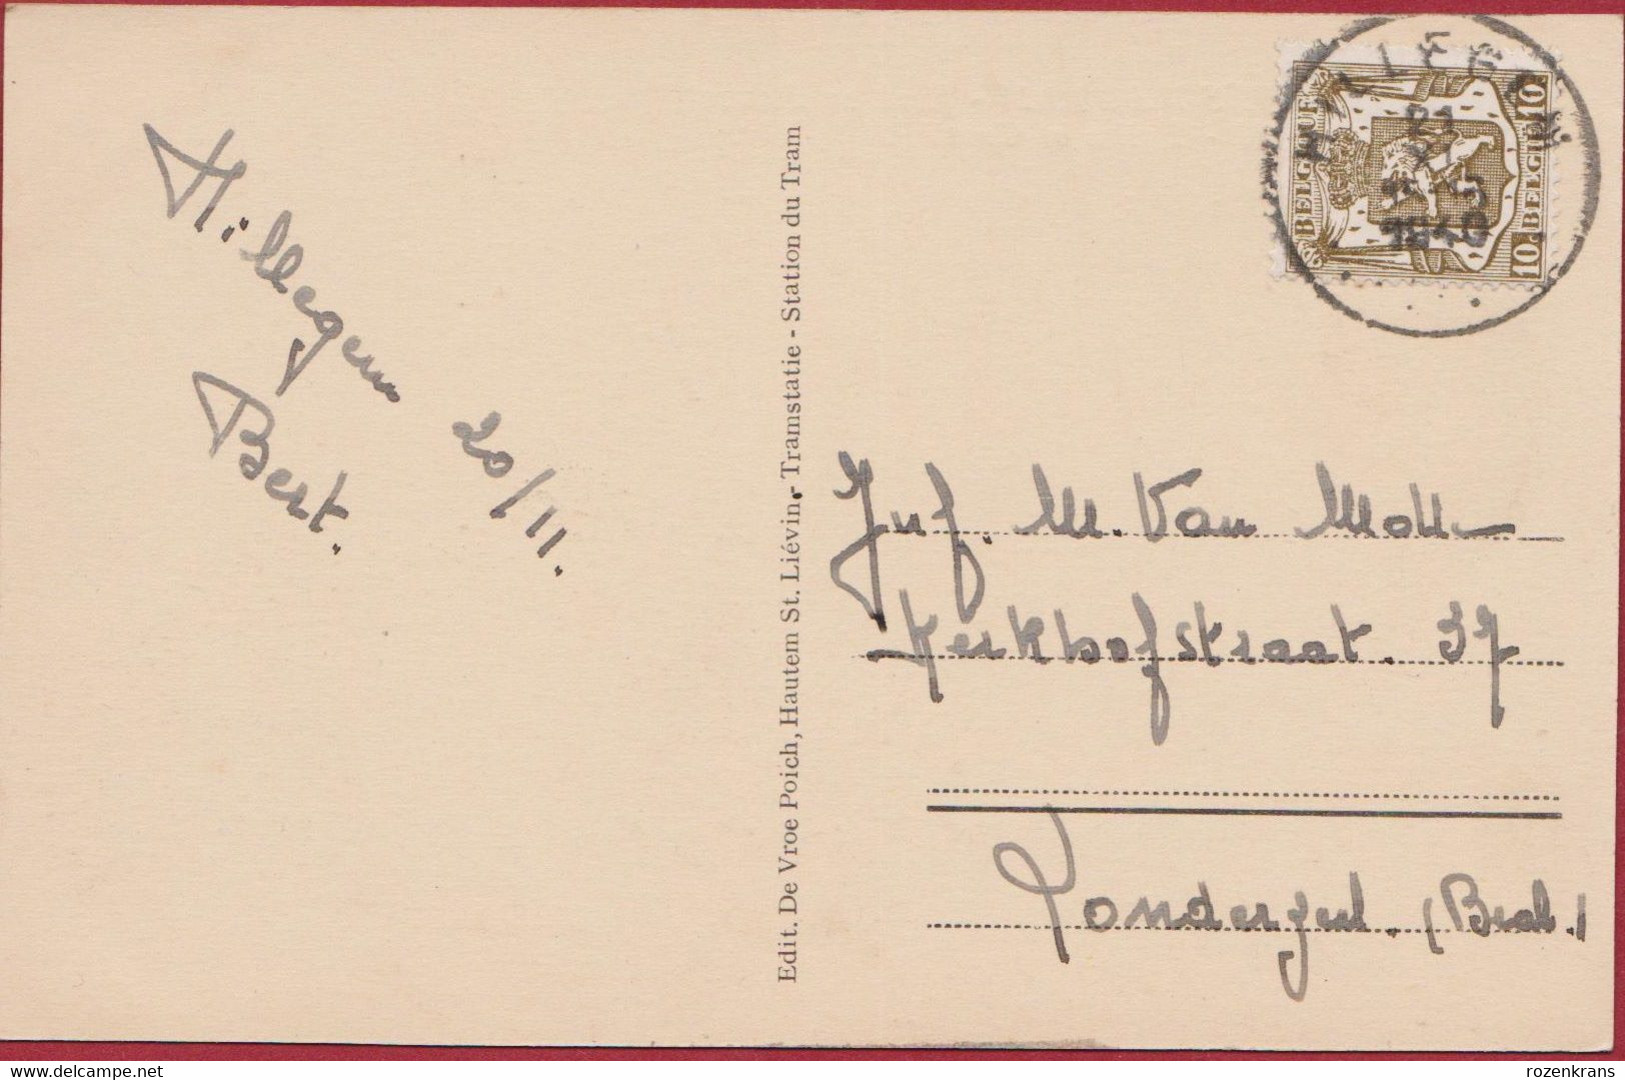 Hillegem 20/11.
Bert.
Edit. De Vroe Poich, Hautem St. Liévin - Tramstatie - Station du Tram
BELGIQUE 10
10 BELGIE
1940
Juf. M. Van Molle
Kerkhofstraat. 37
Londerzeel. (Brab.)
delcampe.net
rozenkrans